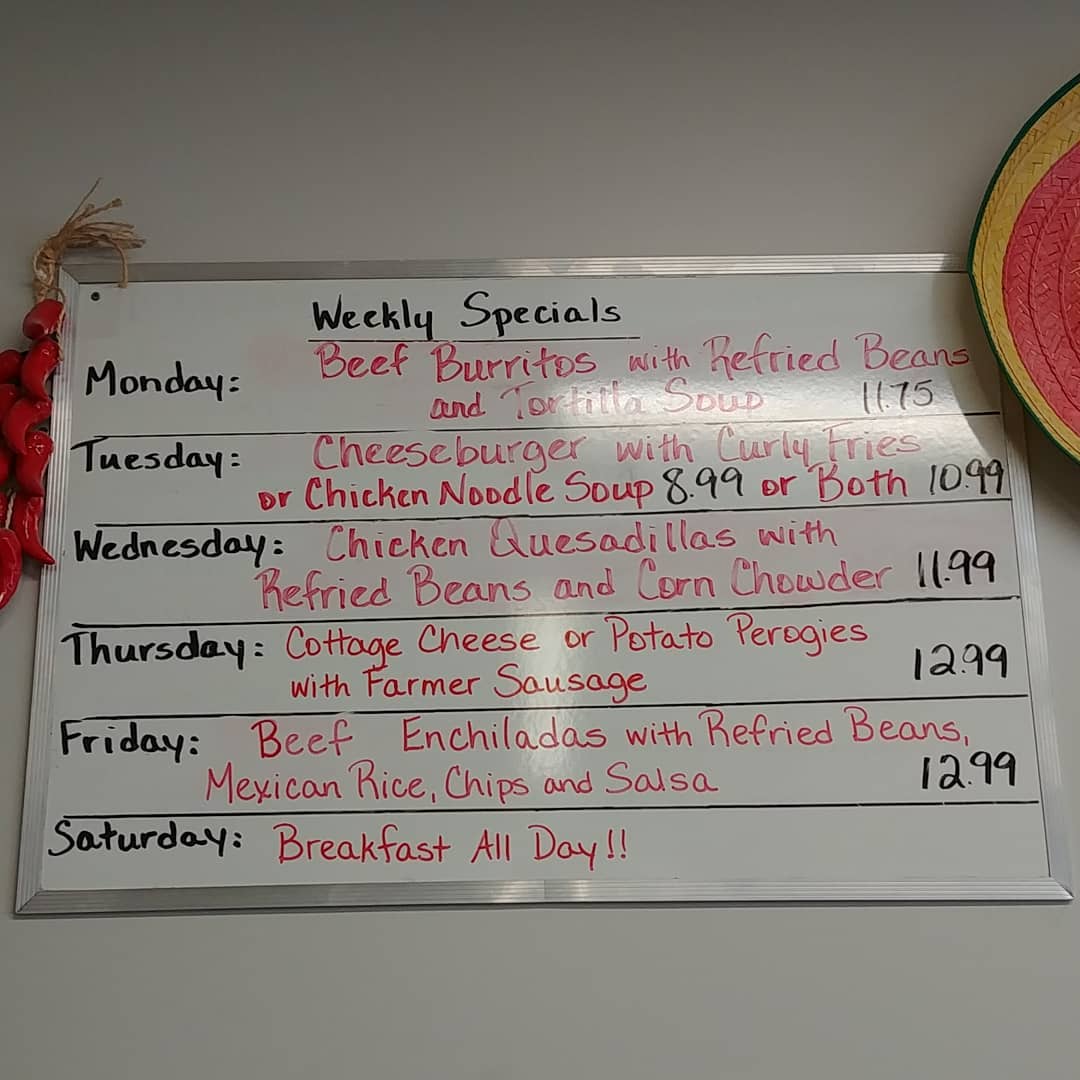 Weekly Specials
Monday: Beef Burritos with Refried Beans
and Tortilla Soup 11.75
Tuesday: Cheeseburger with Curly Fries
or Chicken Noodle Soup 8.99 or Both 10.99
Wednesday: Chicken Quesadillas with
Refried Beans and Corn Chowder 11.99
Thursday: Cottage Cheese or Potato Perogies
with Farmer Sausage 12.99
Friday: Beef Enchiladas with Refried Beans,
Mexican Rice, Chips and Salsa 12.99
Saturday: Breakfast All Day!!